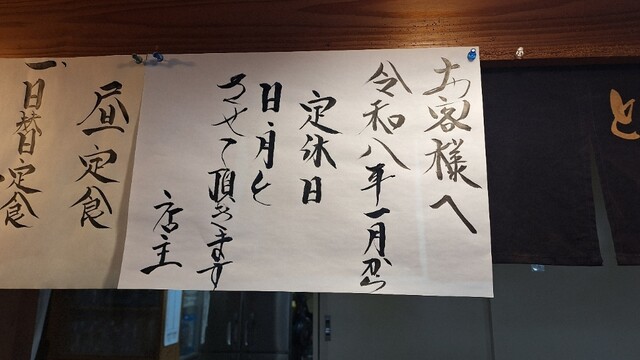 お客様へ
令和八年一月から
定休日
日・月と
させて頂きます
店主
昼定食
一、日替定食
と